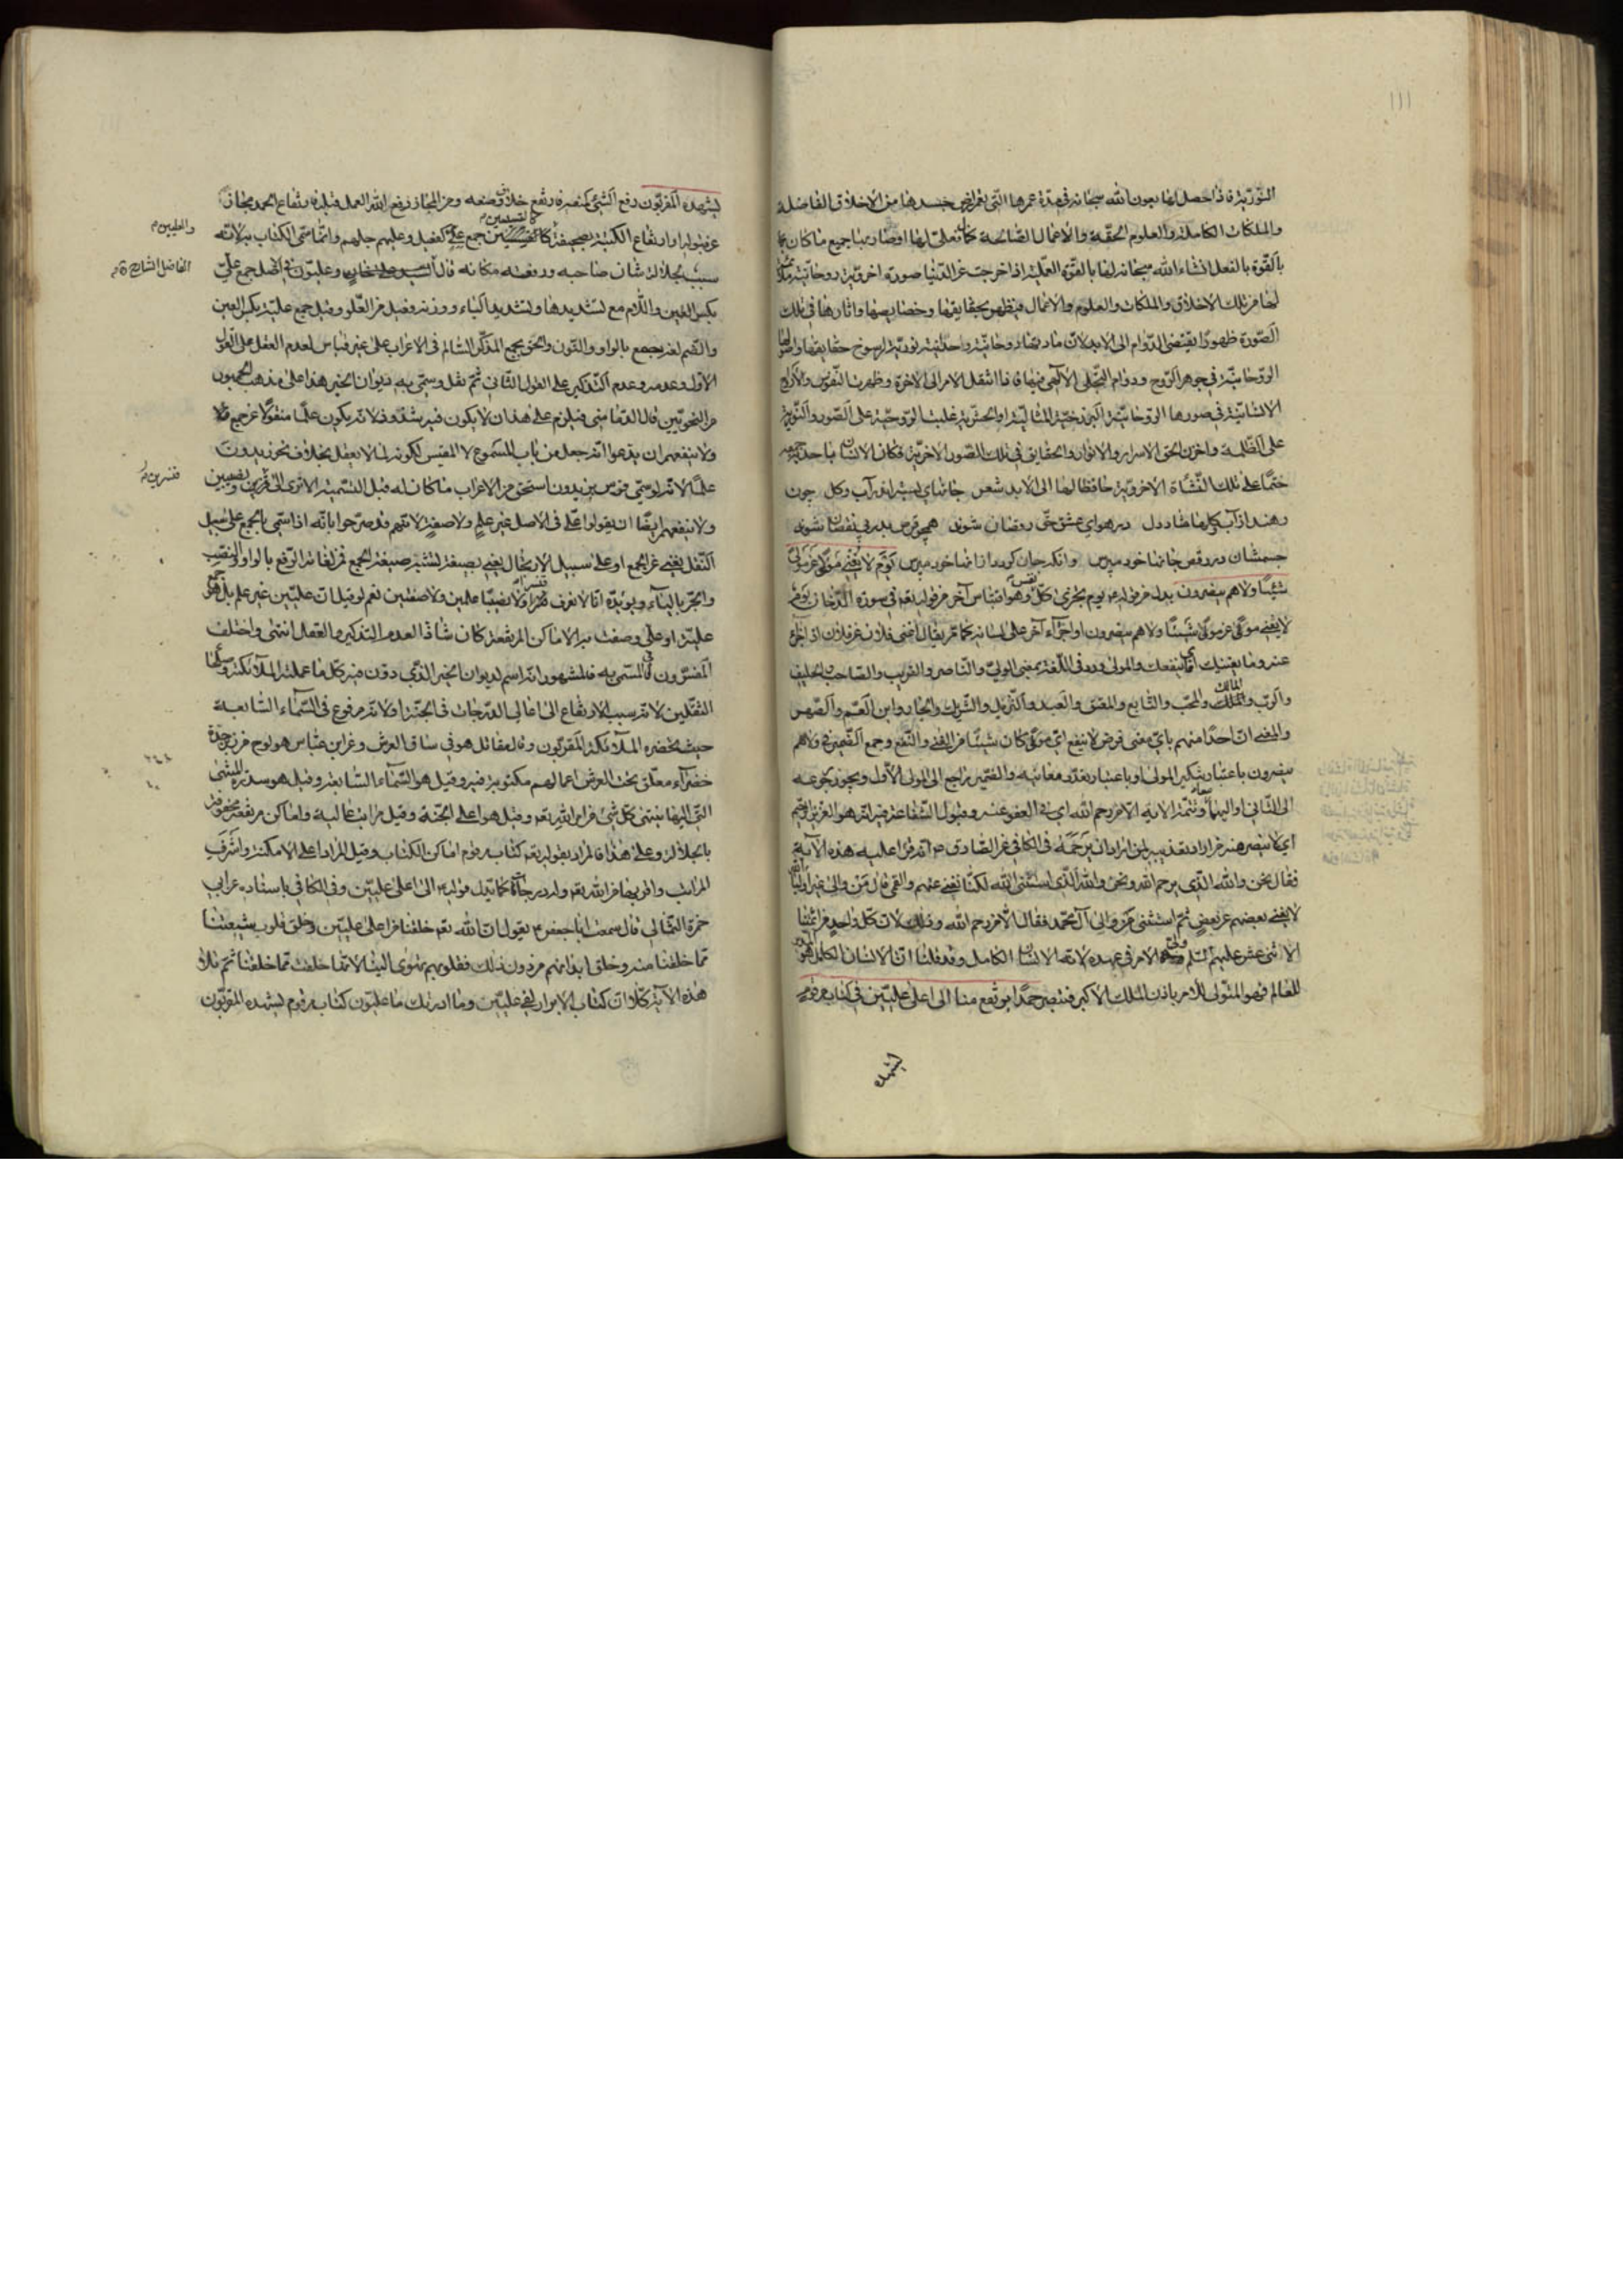 ١١١
النوریة فاذا حصل لها بعون الله سبحانه فی مدة عمرها التی جسدها من الاخلاق الفاضلة
والملکات الکاملة والعلوم الحقة والاعمال الصالحة تعلق لها وصار جمیع ما کان
بالقوة بالفعل انشاء الله سبحانه لها بالقوة العملیة اذا خرجت عن الدنیا صورة اخرویة روحانیة
لها من تلک الاخلاق والملکات والعلوم والاعمال فیظهر بحقایقها وخصایصها واثارها فی تلک
الصورة ظهورا یقتضی الدوام الی الابد لان مادتها روحانیة واحدیة نوریة لرسوخ حقایقها
الروحانیة فی جوهر الروح ودوام التجلی الالهی فیها فاذا انتقل الامر الی الاخرة وظهرت النفوس والارواح
الانسانیة فی صورها الروحانیة البرزخیة المثالیة او الحشریة غلبت الروحیة علی الصور والنوریة
علی الظلمة واخزن الحق الاسرار والانوار والحقایق فی تلک الصور الاخرویة فکان الانسان
ختما علی تلک النشأة الاخرویة حافظا لها الی الابد شعر جانهای بسته اندر آب وکل چون
رهند از آب وکلها شاد دل در هوای عشق حق رقصان شوند همچو قرص بدر بی نقصان شوند
جسمشان در رقص جانها خود مپرس وانکه جان کردد ازانها خود مپرس یوم لا یغنی مولی عن مولی
شیئا ولا هم ینصرون بدل من قوله یوم یجزی کل نفس وهو اقتباس آخر من قوله تعالی فی سورة الدخان یوم
لا یغنی مولی عن مولی شیئا ولا هم ینصرون او اجزاء آخر علی لسانه کما مر یقال اغنی فلان عن فلان اذا اجزء
عنه وما یغنیک ای ما ینفعک والمولی ورد فی اللغة بمعنی الولی والناصر والقریب والصاحب والحلیف
والرب والمالک والمحب والتابع والمعتق والعبد والنزیل والشریک والجار وابن العم والصهر
والمعنی ان احدا منهم بای معنی فرض لا ینفع ای مولی کان شیئا من الغنی والنفع وجمع الضمیر فی ولا هم
ینصرون باعتبار تنکیر المولی او باعتبار تعدد معانیه والضمیر راجع الی المولی الاول ویجوز رجوعه
الی الثانی او الیهما معا وتتمة الایة الا من رحم الله ای فی العفو عنه وقبول الشفاعة فیه انه هو العزیز الرحیم
ای لا ینصر منه من اراد تعذیبه لمن اراد ان یرحمه فی الکافی عن الصادق ع انه قرا علیه هذه الآیة
فقال نحن والله الذی یرحم الله ونحن والله الذی استثنی الله لکنا نغنی عنهم والقمی قال من والی غیر اولیاء الله
لا یغنی بعضهم عن بعض ثم استثنی من والی آل محمد فقال الا من رحم الله وذلک لان کل واحد من ائمتنا
الاثنی عشر علیهم السلم ولی الامر فی عهده لانه الانسان الکامل وقد قلنا ان الانسان الکامل هو
للعالم فهو المتولی للامر باذن الملک الاکبر فنقصر حمدا یرتفع منا الی اعلی علیین فی کتاب مرقوم
یشهده
یشهده المقربون رفع الشئ کنصره فارتفع خلاف وضعه ومن المجاز رفع الله العمل قبله فارتفاع الحمد مجاز
عن قبوله او ارتفاع الکتبة بصحیفته جمع علی کفعیل وعلیهم جلهم وانما سمی الکتاب به لانه
سبب لجلالة شان صاحبه ورفعة مکانه قال وعلیون فی الاصل جمع علی
بکسر العین واللام مع تشدیدها وتشدید الیاء ووزنه فعیل من العلو وقیل جمع علیة بکسر العین
والضم لغة یجمع بالواو والنون والحق بجمع المذکر السالم فی الاعراب علی غیر قیاس لعدم العقل علی القول
الاول وعدمه وعدم التذکیر علی القول الثانی ثم نقل وسمی به دیوان الخیر هذا علی مذهب الجمهور
من النحویین قال الدمامینی فیلزم علی هذا ان لا یکون فیه شذوذ لانه یکون علما منقولا عن جمع
ولا ینفعهم ان یدعوا انه جعل من باب المسموع لا المقیس لکونه لما لا یعقل بخلاف نحو زیدون
علما لانه لو سمی بزیدون استحق من الاعراب ما کان له قبل التسمیة الا تری الی قنسرین ونصیبین
ولا ینفعهم ایضا ان یقولوا علی فی الاصل غیر علم ولا صفة لانهم قد صرحوا بانه اذا سمی بالجمع علی سبیل
النقل یعنی عن الجمع او علی سبیل الارتجال یعنی بصیغة تشبه صیغة الجمع فی لغاته الرفع بالواو والنصب
والجر بالیاء ویؤیده انا لا نعرف قنسرا ولا نصیبا علمین ولا صفتین نعم لو قیل ان علیین غیر علم بل هو جمع
علیة او علی وصفت به الاماکن المرتفعة کان شاذا لعدم التذکیر والعقل انتهی واختلف
المفسرون فی المسمی به فالمشهور انه اسم لدیوان الخیر الذی دون فیه کل ما عملته الملائکة وصلحاء
الثقلین لانه سبب الارتفاع الی اعالی الدرجات فی الجنة او لانه مرفوع فی السماء السابعة
حیث یحضره الملائکة المقربون وقال مقاتل هو فی ساق العرش وعن ابن عباس هو لوح من زبرجدة
خضراء معلق تحت العرش اعمالهم مکتوبة فیه وقیل هو السماء السابعة وقیل هو سدرة المنتهی
التی الیها ینتهی کل شئ من امر الله تعالی وقیل هو اعلی الجنة وقیل مراتب عالیة واماکن مرتفعة محفوفة
بالجلالة وعلی هذا فالمراد بقوله تعالی کتاب مرقوم اماکن الکتاب وقیل المراد اعلی الامکنة واشرف
المراتب واقربها من الله تعالی وله درجات کما یدل قوله الی اعلی علیین وفی الکافی باسناده عن ابی
حمزة الثمالی قال سمعت ابا جعفر ع یقول ان الله تعالی خلقنا من اعلی علیین وخلق قلوب شیعتنا
مما خلقنا منه وخلق ابدانهم من دون ذلک فقلوبهم تهوی الینا لانها خلقت مما خلقنا ثم تلا
هذه الآیة کلا ان کتاب الابرار لفی علیین وما ادریک ما علیون کتاب مرقوم یشهده المقربون
والعلیین م
الفاضل الشارح
قنسرین